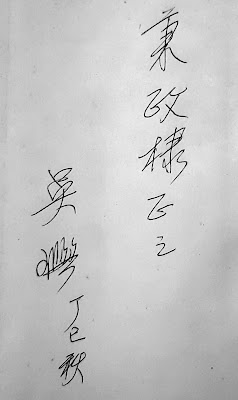 秉政棣正之
吳鷗丁巳秋